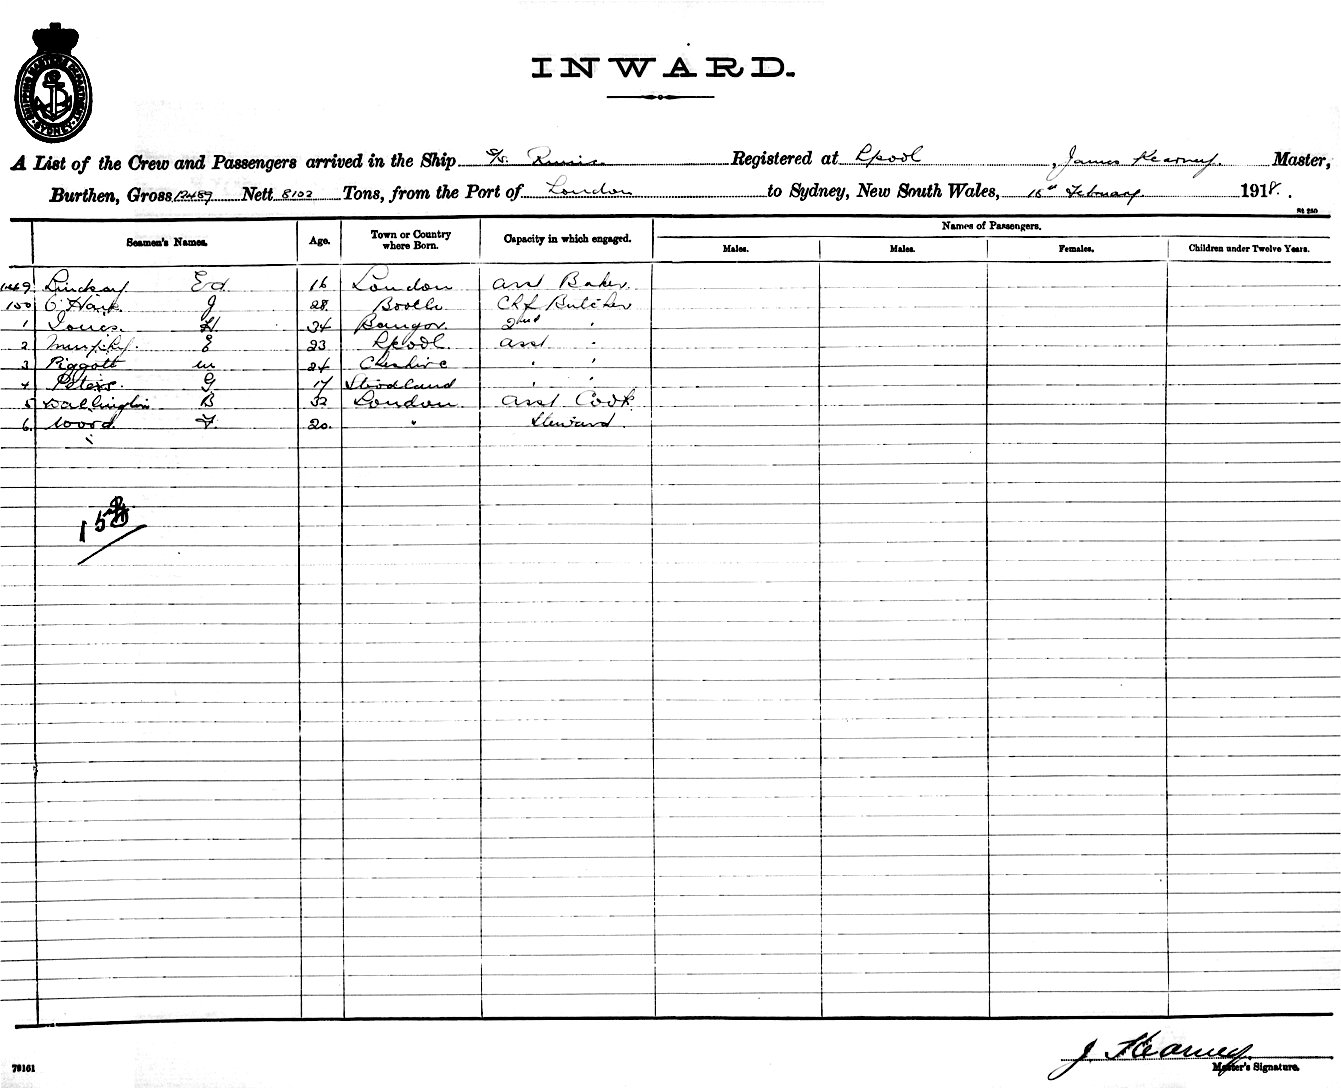 SHIPPING MASTER'S DEPARTMENT SYDNEY
INWARD.
A List of the Crew and Passengers arrived in the Ship S/S. Runic Registered at Lpool, James Kearney. Master,
Burthen, Gross 12489 Nett 8102 Tons, from the Port of London to Sydney, New South Wales, 15th February 1918.
Seamen's Names. Age. Town or Country where Born. Capacity in which engaged. Names of Passengers.
Males. Males. Females. Children under Twelve Years.
149 Lindsay Ed 16 London asst Baker
150 J 28 Bootle Chf Butcher
1 Jones H 24 Bangor. 2nd "
2 Murphy E 23 Lpool asst "
3 Piggott W 24 Cheshire " "
4 Peters G 17 " "
5 B 32 London asst Cook
6. Wood F 20. " Steward.
J Kearney
Master's Signature.
78161